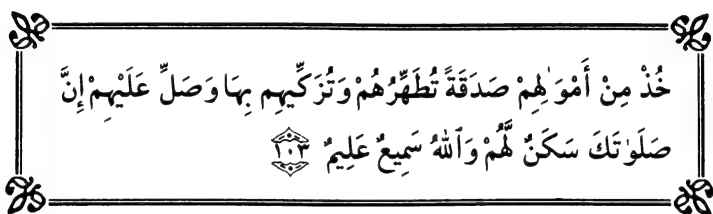 خُذْ مِنْ أَمْوَٰلِهِمْ صَدَقَةً تُطَهِّرُهُمْ وَتُزَكِّيهِم بِهَا وَصَلِّ عَلَيْهِمْ إِنَّ
صَلَوٰتَكَ سَكَنٌ لَّهُمْ وَٱللَّهُ سَمِيعٌ عَلِيمٌ ١٠٣